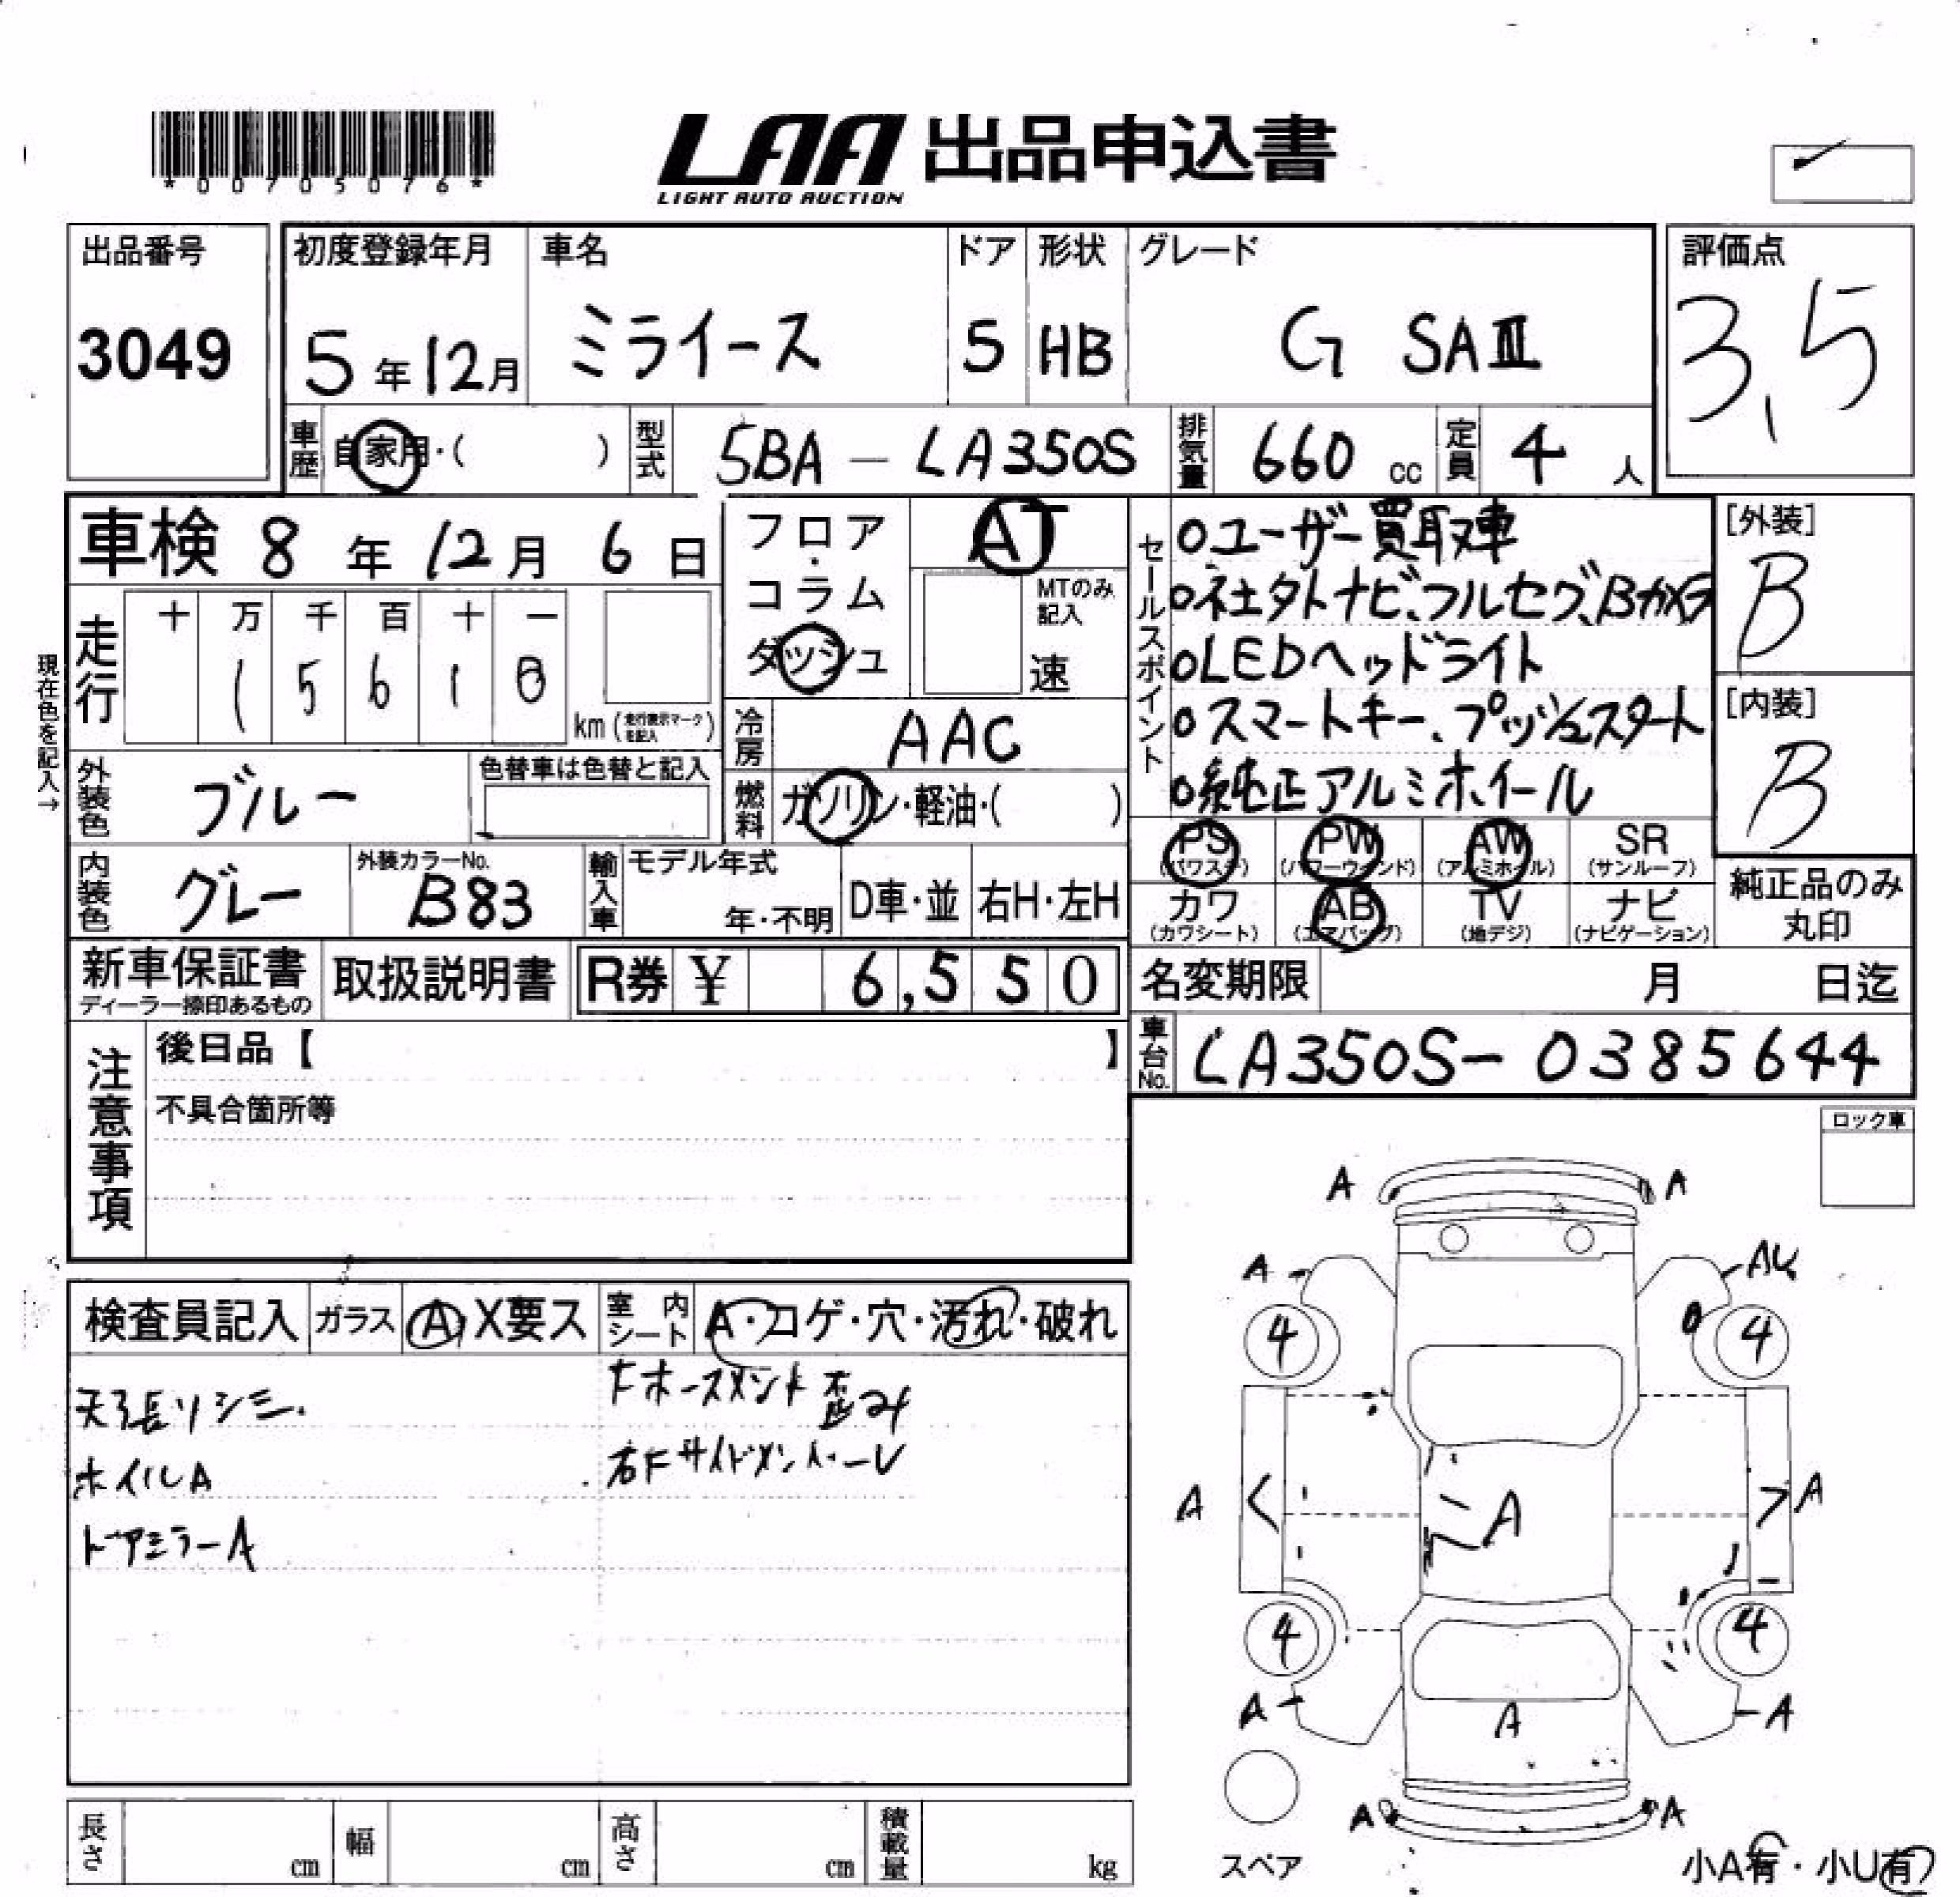 *00705076*
LAA 出品申込書
LIGHT AUTO AUCTION
出品番号
3049
初度登録年月
5年12月
車名
ミライース
ドア
5
形状
HB
グレード
G SAⅢ
評価点
3.5
車歴
自家用・( )
型式
5BA-LA350S
排気量
660 cc
定員
4 人
車検 8年12月6日
現在色を記入→
走行
十 万 千 百 十 一
1 5 6 1 8
km (走行表示マークを記入)
フロア・コラム
ダッシュ
AT
MTのみ記入
速
冷房
AAC
燃料
ガソリン・軽油・( )
セールスポイント
○ユーザー買取車
○社外ナビ、フルセグ、Bカメラ
○LEDヘッドライト
○スマートキー、プッシュスタート
○純正アルミホイール
[外装]
B
[内装]
B
外装色
ブルー
色替車は色替と記入
内装色
グレー
外装カラーNo.
B83
輸入車
モデル年式
年・不明
D車・並
右H・左H
PS (パワステ)
PW (パワーウィンド)
AW (アルミホイル)
SR (サンルーフ)
カワ (カワシート)
AB (エアバッグ)
TV (地デジ)
ナビ (ナビゲーション)
純正品のみ丸印
新車保証書
ディーラー捺印あるもの
取扱説明書
R券 ¥ 6,550
名変期限 月 日迄
車台No.
LA350S-0385644
注意事項
後日品【 】
不具合箇所等
ロック車
検査員記入
ガラス
A X要ス
室内シート
A・コゲ・穴・汚れ・破れ
天張リシミ.
ホイルA
ドアミラーA
Fホースメント歪み
右Fサイドメンバーレ
A A
A AU
4 4
A A A
4 4
A A A
A A
スペア
小A有・小U有
長さ cm
幅 cm
高さ cm
積載量 kg